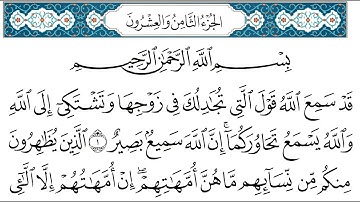 الجزء الثامن والعشرون
بِسْمِ اللَّهِ الرَّحْمَٰنِ الرَّحِيمِ
قَدْ سَمِعَ اللَّهُ قَوْلَ الَّتِي تُجَادِلُكَ فِي زَوْجِهَا وَتَشْتَكِي إِلَى اللَّهِ
وَاللَّهُ يَسْمَعُ تَحَاوُرَكُمَا ۚ إِنَّ اللَّهَ سَمِيعٌ بَصِيرٌ ١ الَّذِينَ يُظَاهِرُونَ
مِنكُم مِّن نِّسَائِهِم مَّا هُنَّ أُمَّهَاتِهِمْ ۖ إِنْ أُمَّهَاتُهُمْ إِلَّا اللَّائِي